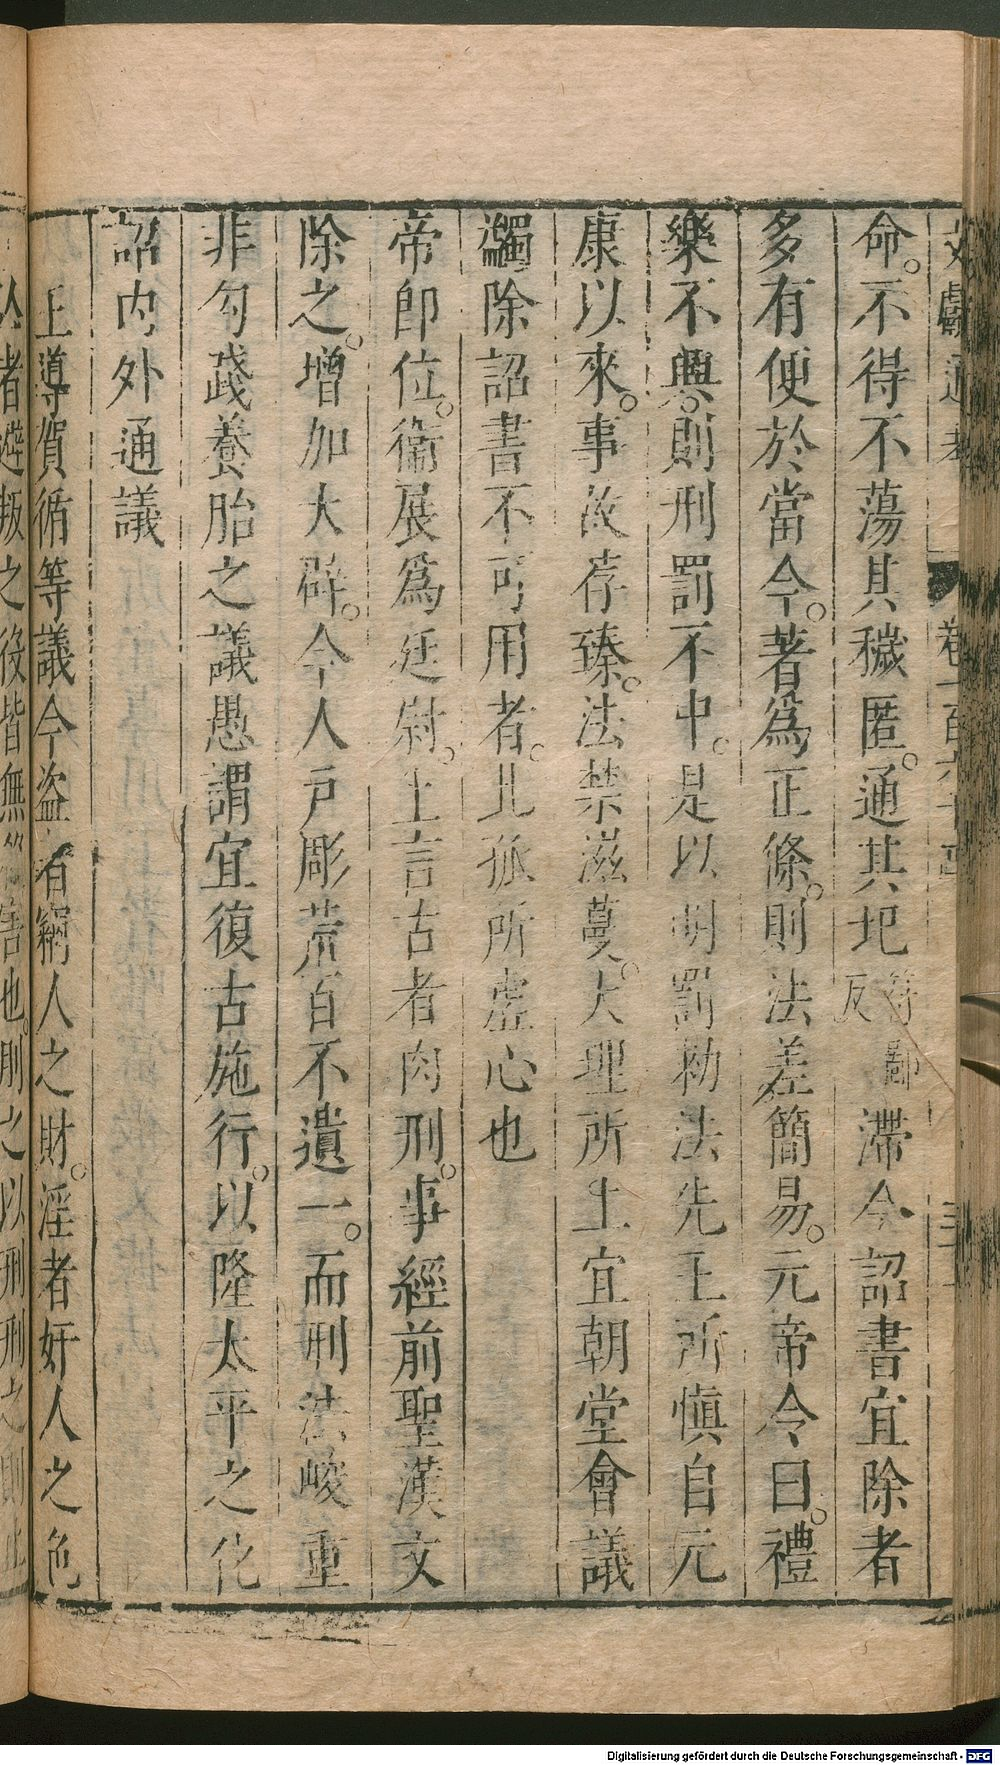 文獻通考 卷一百六十
命。不得不蕩其穢匿。通其圯符鄙反滯今詔書宜除者
多有便於當今。著爲正條。則法差簡易。元帝令曰。禮
樂不興。則刑罰不中。是以明罰勑法先王所慎自元
康以來。事故荐臻。法禁滋蔓。大理所上宜朝堂會議
蠲除詔書不可用者。此孤所虛心也
帝卽位。衞展爲廷尉。上言古者肉刑。事經前聖漢文
除之。增加大辟。今人戸彫荒百不遺一。而刑法峻重
非勾踐養胎之議愚謂宜復古施行。以隆太平之化
詔内外通議
王導賀循等議今盜者竊人之財。淫者奸人之色
者避叛之役皆無 害也。刖之以刑刑之則止
Digitalisierung gefördert durch die Deutsche Forschungsgemeinschaft - DFG